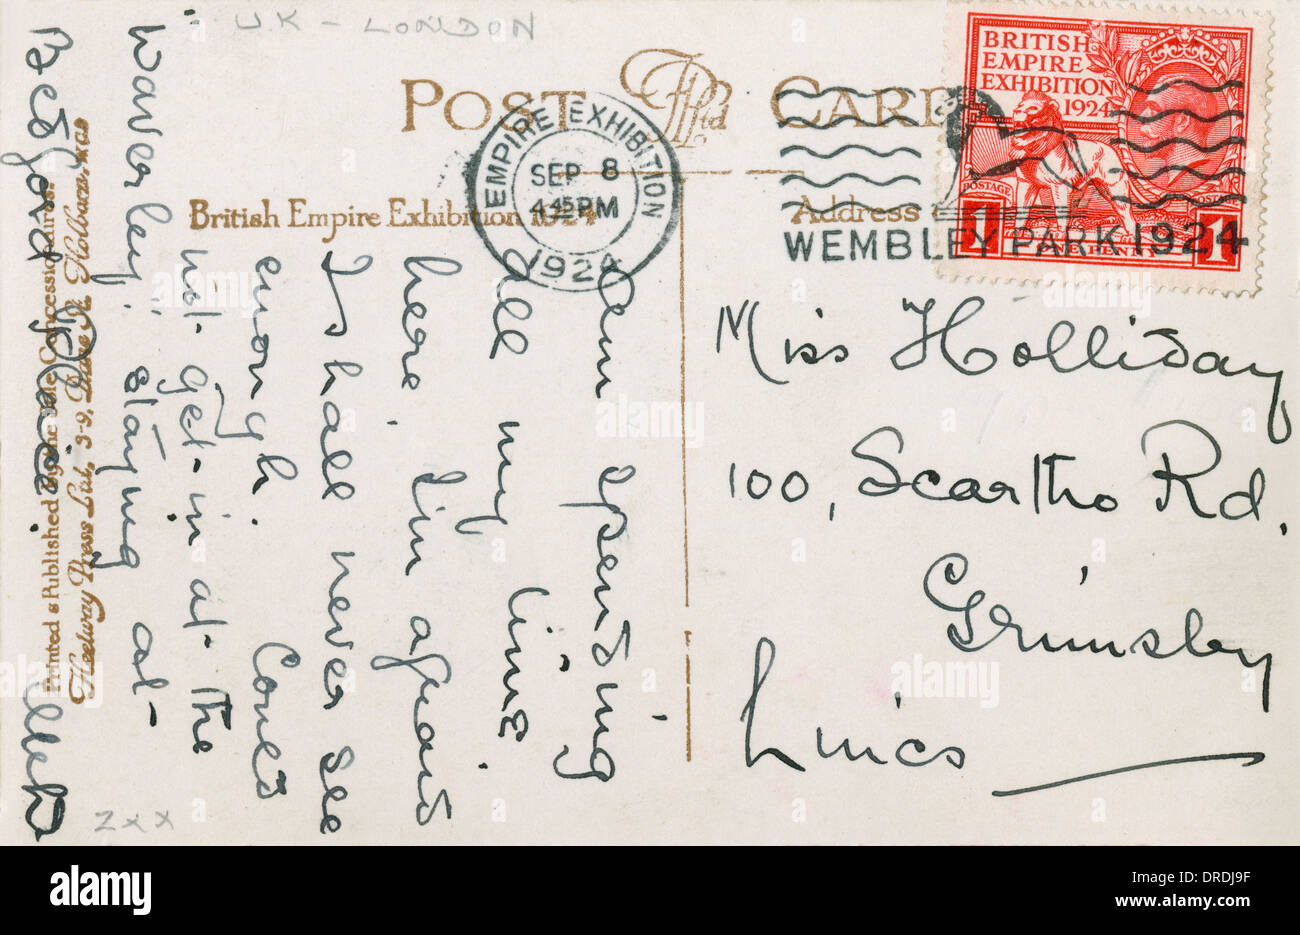 U.K - LONDON
POST CARD
EMPIRE EXHIBITION
SEP 8
4 45 PM
1924
WEMBLEY PARK 1924
BRITISH
EMPIRE
EXHIBITION
1924
POSTAGE
1
1
British Empire Exhibition 1924
Address
Miss Holliday
100, Scartho Rd.
Grimsby
Lincs
Am spending
all my time
here. I'm afraid
I shall never see
enough. Could
not get in at the
Waverley. staying at
Bedford place.
Printed & Published by the
Fleetway Press Ltd., 3-9, Dane St. Holborn. W.C.
ZXX
alamy
Image ID: DRDJ9F
www.alamy.com